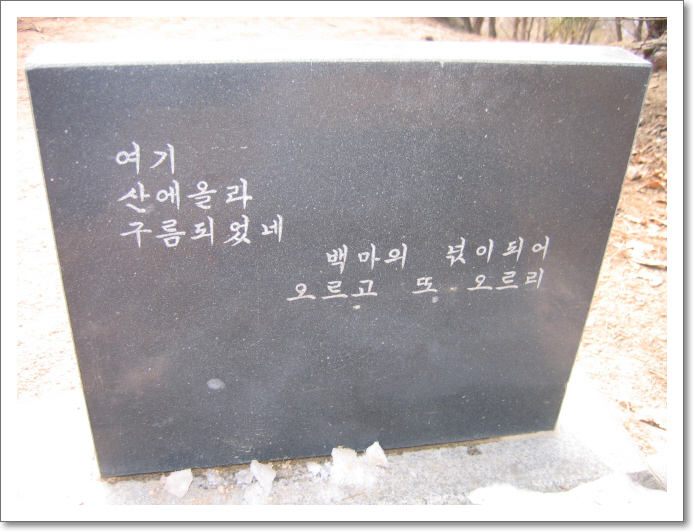 여기
산에올라
구름되었네
백마의 넋이되어
오르고 또 오르리